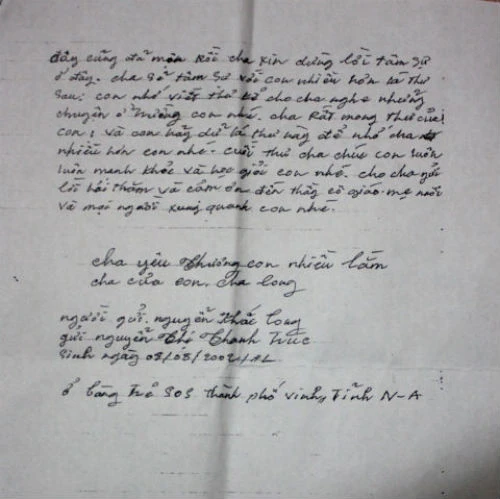 đây cũng đã muộn rồi cha xin dừng lời tâm sự
ở đây. cha sẽ tâm sự với con nhiều hơn lá thư
sau; con nhớ viết thư kể cho cha nghe những
chuyện ở trường con nhé. cha rất mong thư của
con; và con hãy dữ lá thư này để nhớ cha
nhiều hơn con nhé. cuối thư cha chúc con luôn
luôn mạnh khỏe và học giỏi con nhé. cho cha gửi
lời hỏi thăm và cảm ơn đến thầy cô giáo. mẹ nuôi
và mọi người xung quanh con nhé.
cha yêu thương con nhiều lắm
cha của con. cha long
người gửi. nguyễn khắc long
gửi nguyễn thị thanh trúc
sinh ngày 08/05/2002/AL
ở làng trẻ SOS thành phố vinh, tỉnh N-A